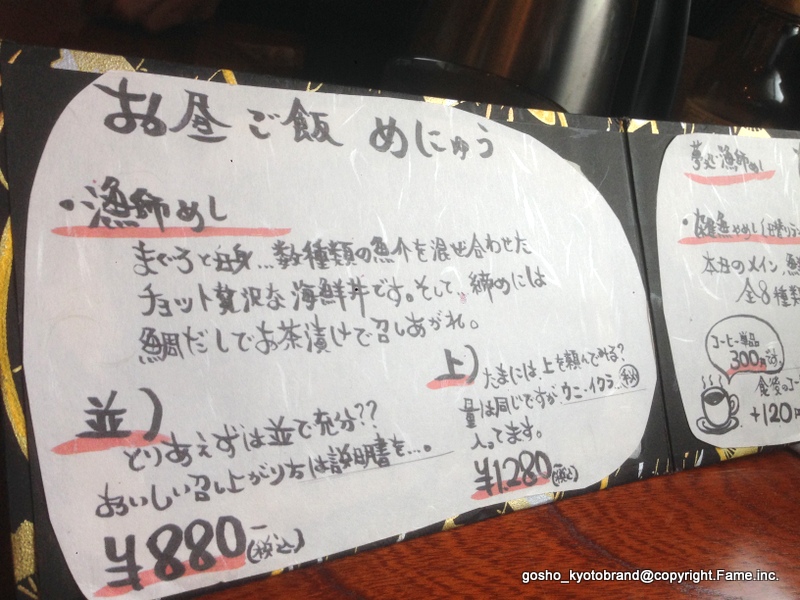 お昼ご飯 めにゅう
・漁師めし
まぐろと白身…数種類の魚介を混ぜ合わせた
チョット贅沢な海鮮丼です。そして、締めには
鯛だしでお茶漬けで召しあがれ。
並)
とりあえずは並で充分??
おいしい召し上がり方は説明書を…。
¥880-(税込)
上)
たまには上を頼んでみる?
量は同じですがウニ・イクラ
入ってます。
¥1,280(税込)
漁師めし
本日のメイン
全8種類
コーヒー単品
300円
食後のコー
+120円
gosho_kyotobrand@copyright.Fame.inc.